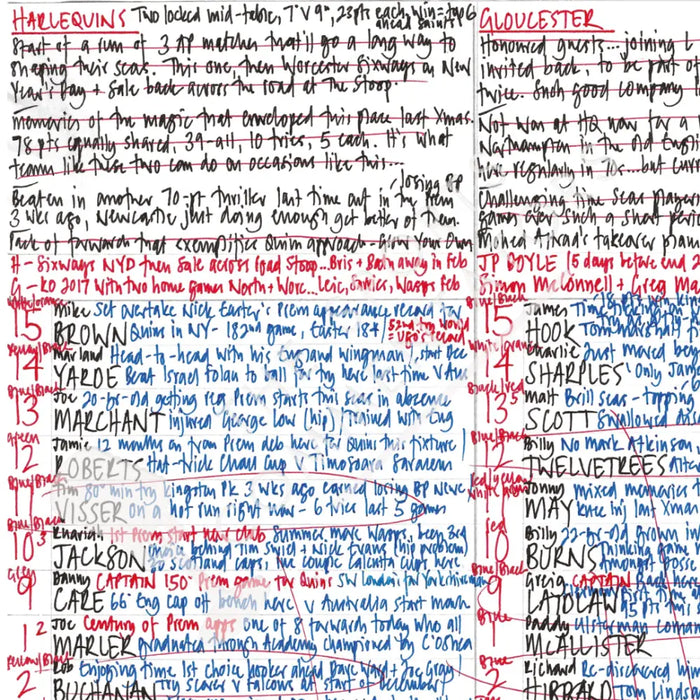 HARLEQUINS Two locked mid-table, 7 v 9, 23pts each, win = top 6
ahead Saints
Start of a run of 3 AP matches that'll go a long way to
shaping their seas. This one, then Worcester Sixways on New
Year's Day + Sale back across the road at the Stoop.
Memories of the magic that enveloped this place last Xmas.
78 pts equally shared, 39-all, 10 tries, 5 each. It's what
teams like these two can do on occasions like this...
losing BP
Beaten in another 70-pt thriller last time out in the Prem
3 wks ago, Newcastle just doing enough get better of them.
Pack of forwards that exemplifies Quins approach - Grow Your Own
H - Sixways NYD then Sale across road Stoop... Bris + Bath away in Feb
G - KO 2017 with two home games North + Worc... Leic, Sarries, Wasps Feb
White/Orange
15 Mike BROWN Set overtake Nick Easter's Prem appearance record for
Quins in NY - 182nd game, Easter 184
52nd try would
= Ugo's record
14 Marland YARDE Head-to-head with his England wingman, start Dec
Beat Israel Folau to ball for try here last time v Aus
13 Joe MARCHANT 20-yr-old getting reg Prem starts this seas in absence
injured George Low (hip), trained with Eng
Green
12 Jamie ROBERTS 12 months on from Prem deb here for Quins this fixture
Hat-trick Chall Cup v Timisoara Saracens
11 Tim VISSER 80th min try Kingston Pk 3 wks ago earned losing BP Newc
on a hot run right now - 6 tries last 5 games
10 JACKSON 1st Prem start new club Summer move Wasps, been 3rd
choice behind Tim Swiel + Nick Evans (hip problem)
Scotland caps, couple Calcutta Cups here
Grey
9 Danny CARE CAPTAIN 150th Prem game for Quins SW London's fav Yorkshireman
66th Eng cap off bench here v Australia start month
1 Joe MARLER Century of Prem apps one of 8 forwards today who all
graduated through Academy championed by C O'Shea
2 Rob BUCHANAN Enjoying time 1st choice hooker ahead Dave Ward + Joe Gray
scorer v Falcons at start of December
GLOUCESTER
Honoured guests... joining
invited back, to be part of
twice. Such good company
Not won at HQ now for a
Northampton in the old English
here regularly in 10s... but
Challenging time seas players
games over such a short
Mohed Altrad's takeover
JP DOYLE 15 days before end
Simon McConnell + Greg
15 James HOOK
14 Charlie SHARPLES Just moved
Only
13 Matt SCOTT Brill seas - topping
swallowed
12 Billy TWELVETREES No mark Atkinson
11 Jonny MAY mixed memories
knee inj last Xmas
Red
10 Billy BURNS 22-yr-old
Thinking game
Amongst
9 Greig LAIDLAW CAPTAIN Back here
45 pts
1 Paddy McALLISTER Ulsterman
2 Richard HIBBARD Re-discovered